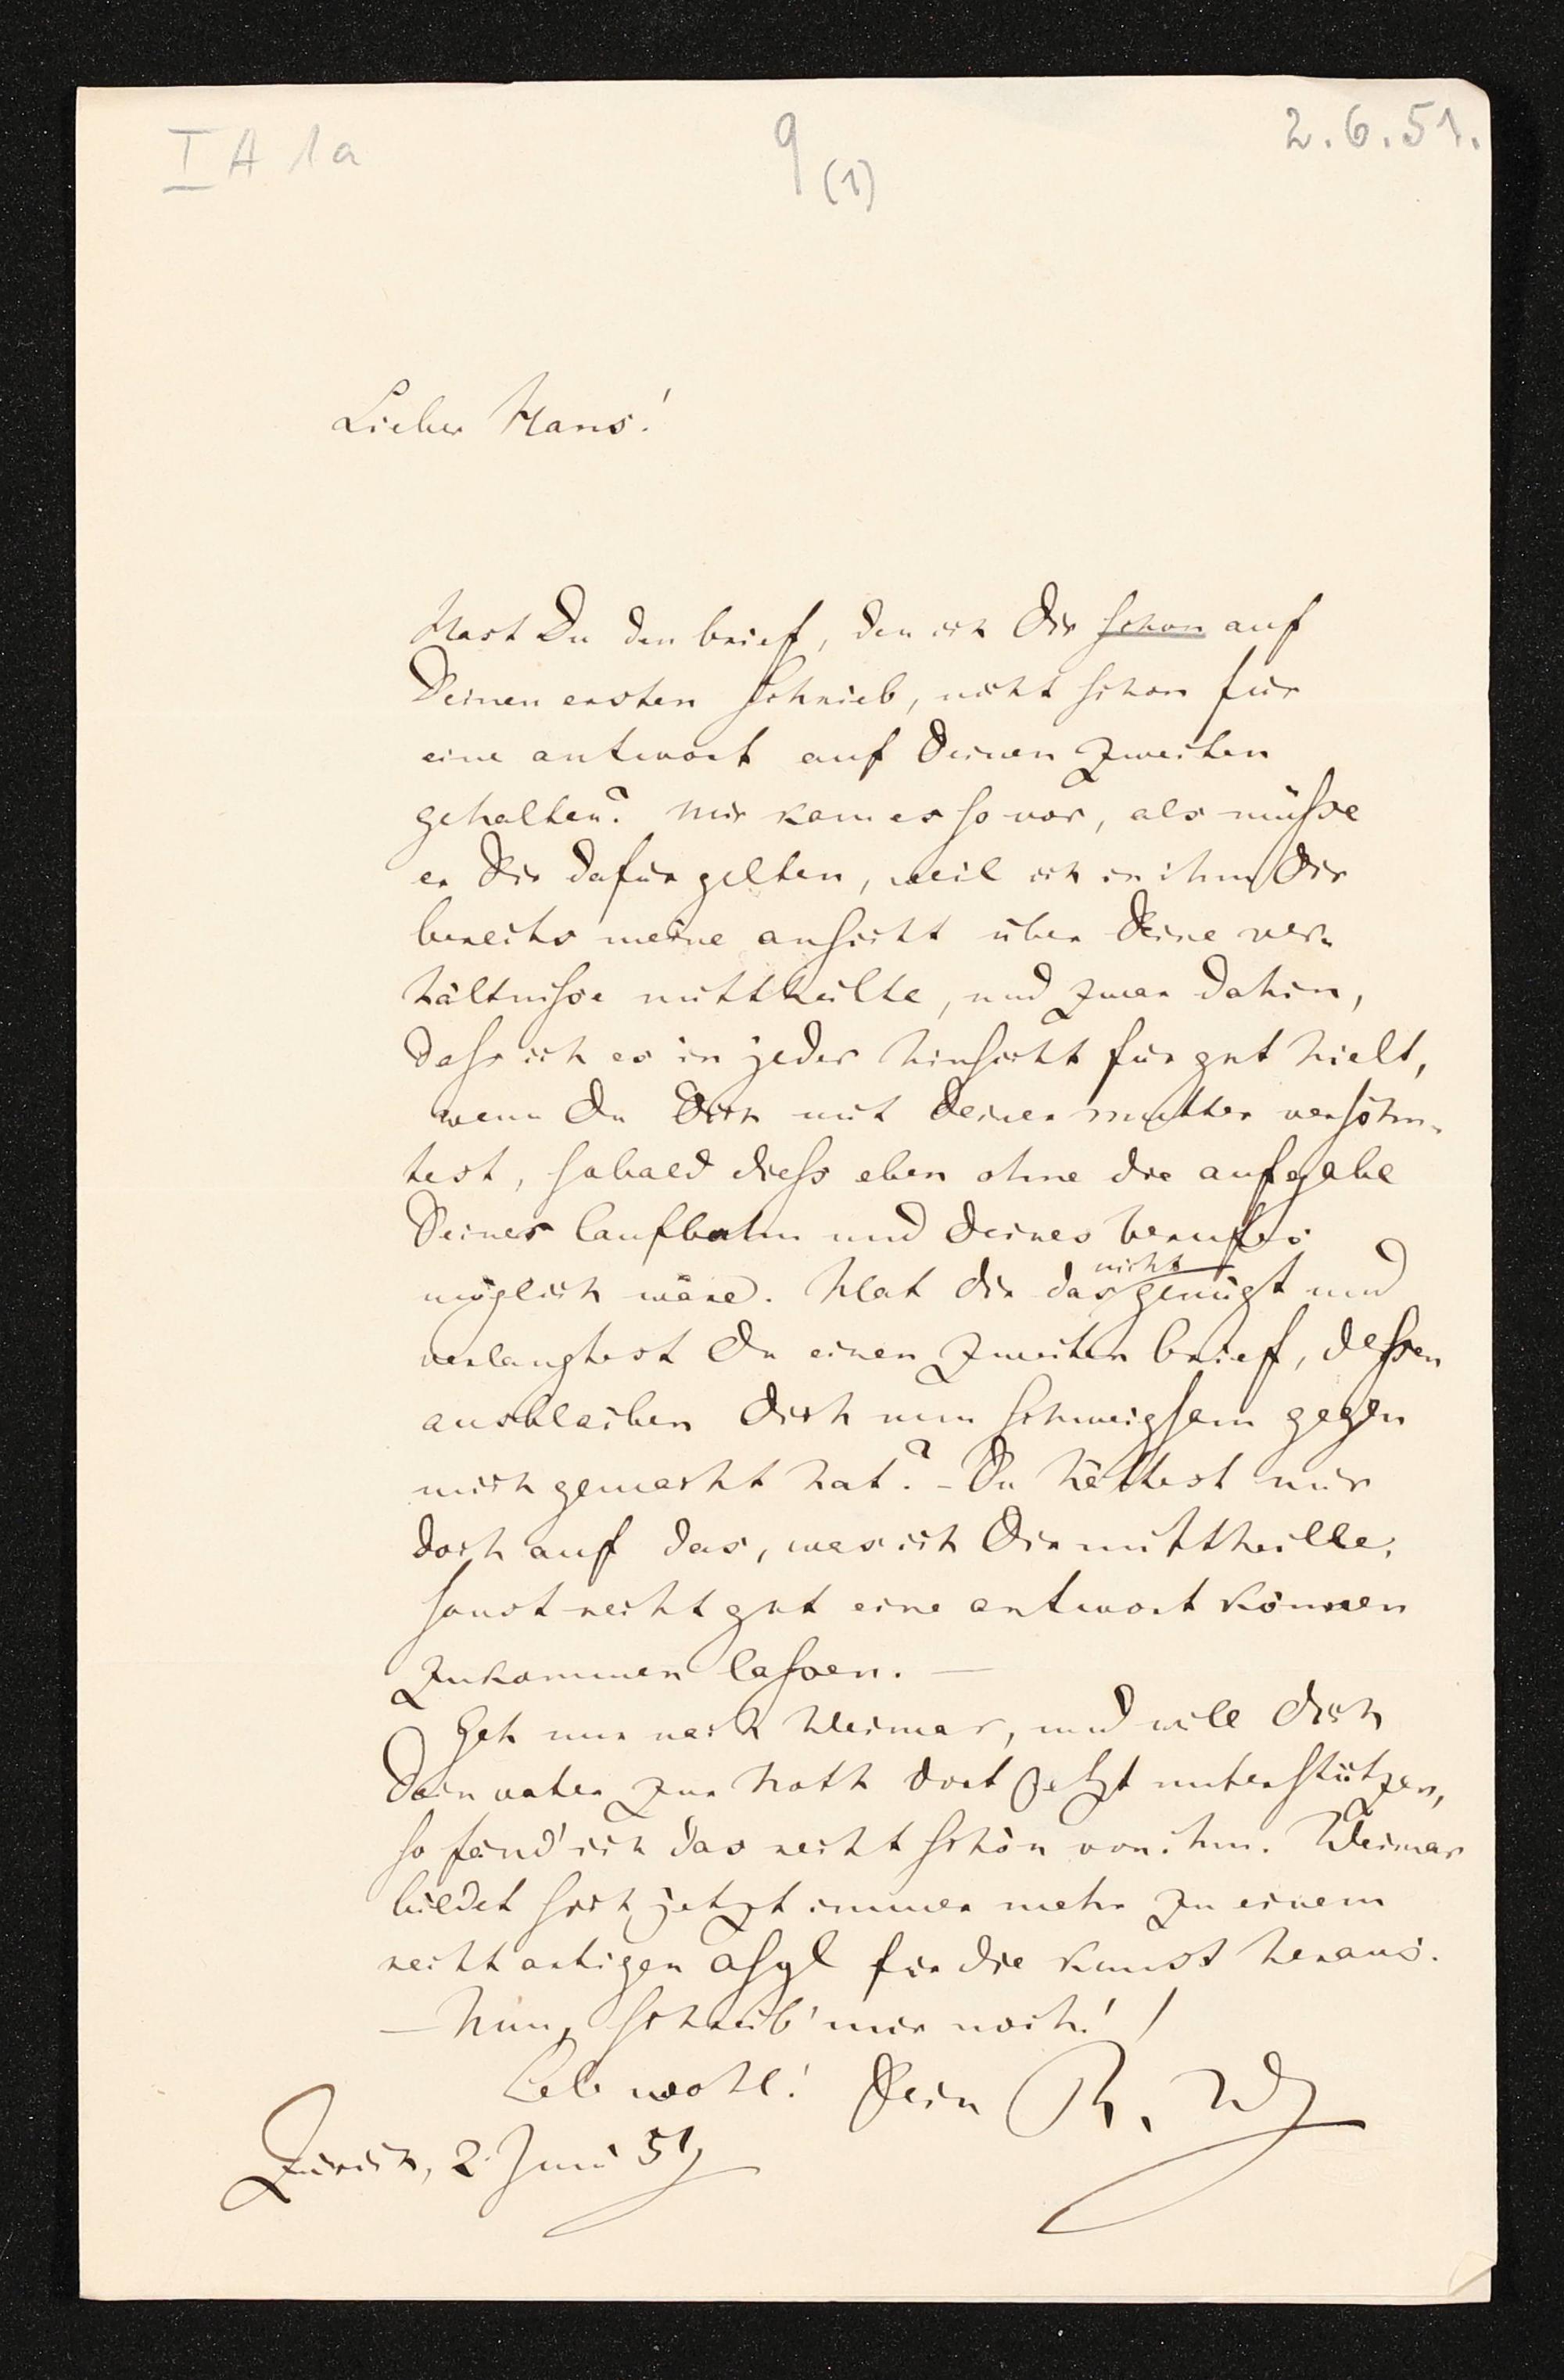 I A 1a
9 (1)
2.6.51.
Lieber Hans!
Hast Du den brief, den ich Dir schon auf
Deinen ersten schrieb, nicht schon für
eine antwort auf Deinen zweiten
gehalten? Mir kam es so vor, als müsse
er Dir dafür gelten, weil ich in ihm Dir
bereits meine ansicht über Deine ver-
hältnisse mittheilte, und zwar dahin,
dass ich es in jeder hinsicht für gut hielt,
wenn Du Dich mit Deiner mutter versöhn-
test, sobald diess eben ohne die aufgabe
Deiner laufbahn und Deines berufes
nicht
möglich wäre. Hat dir das genügt und
verlangtest Du einen zweiten brief, dessen
ausbleiben Dich nun schweigsam gegen
mich gemacht hat? – Du hättest mir
doch auf das, was ich Dir mittheilte,
sonst recht gut eine antwort können
zukommen lassen. —
Geh nur nach Weimar, und will Dich
Dein vater zur Noth dort jetzt unterstützen,
so fänd' ich das recht schön von ihm. Weimar
bildet sich jetzt immer mehr zu einem
recht artigen asyl für die kunst heraus.
— Nun, schreib' mir noch! /
Leb wohl! Dein R. W.
Zürich, 2. Juni 51